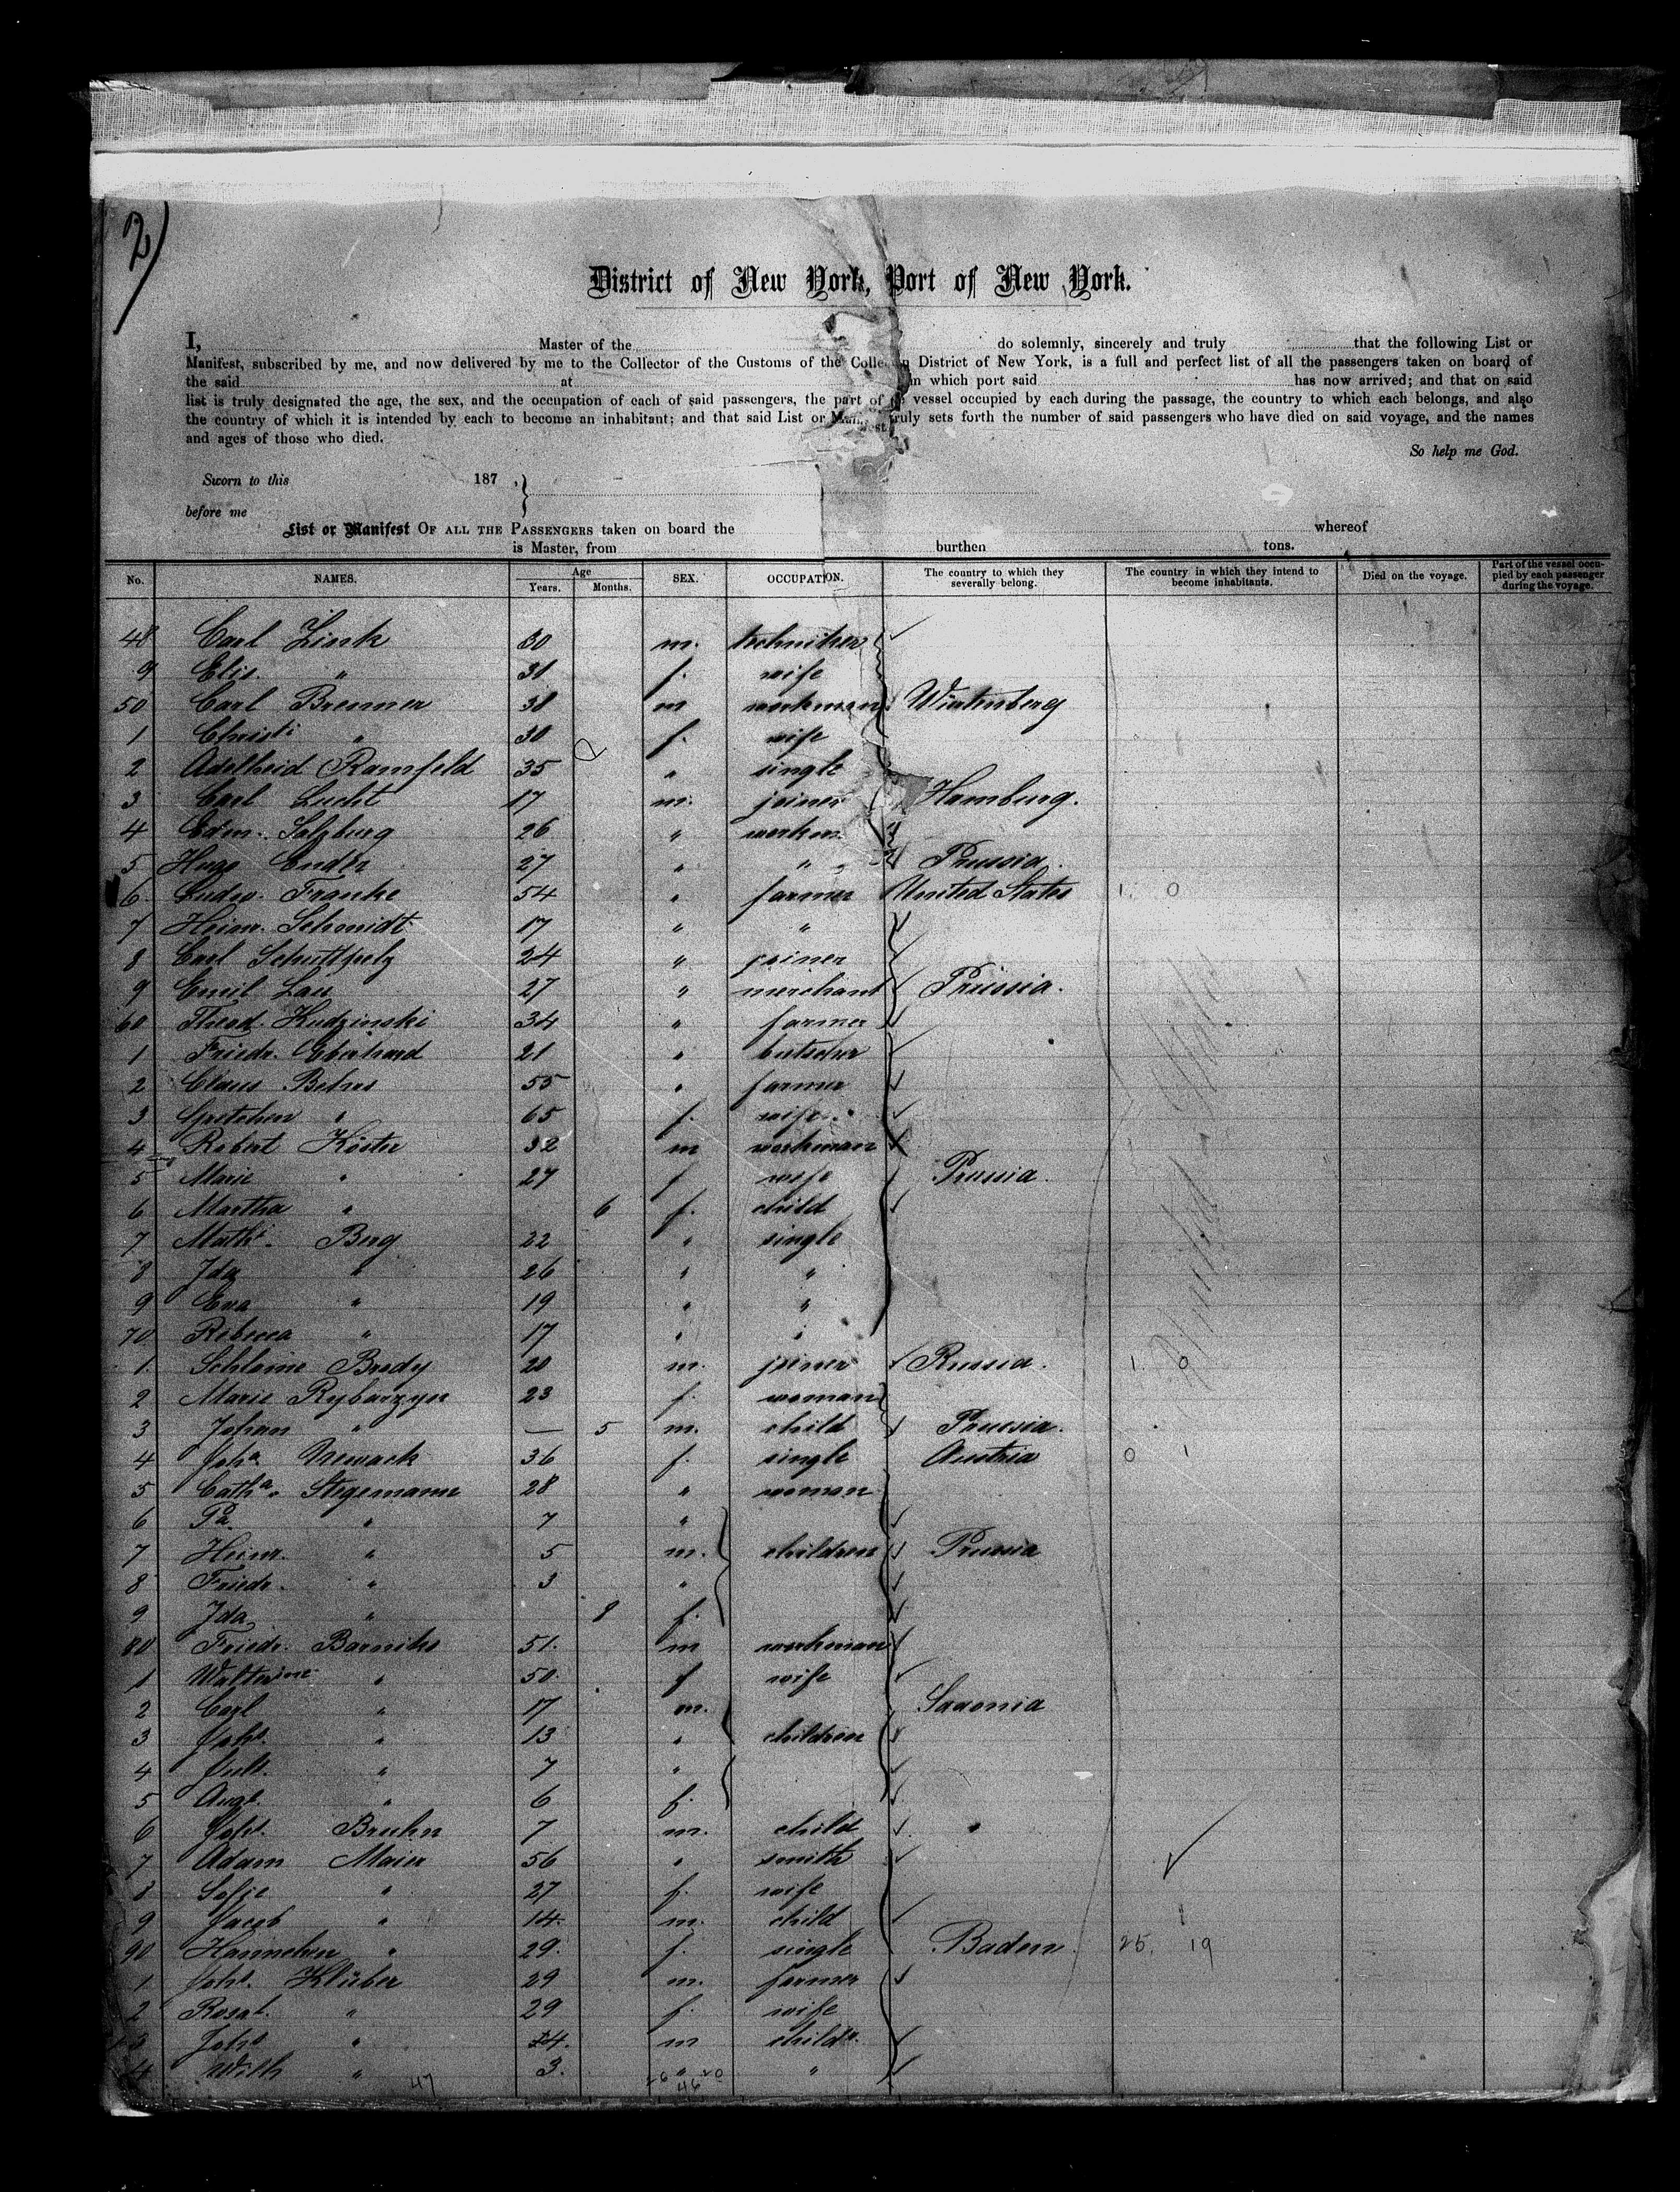 2)
District of New York, Port of New York.
I, Master of the do solemnly, sincerely and truly that the following List or
Manifest, subscribed by me, and now delivered by me to the Collector of the Customs of the Colle n District of New York, is a full and perfect list of all the passengers taken on board of
the said at m which port said has now arrived; and that on said
list is truly designated the age, the sex, and the occupation of each of said passengers, the part of vessel occupied by each during the passage, the country to which each belongs, and also
the country of which it is intended by each to become an inhabitant; and that said List or Manifest truly sets forth the number of said passengers who have died on said voyage, and the names
and ages of those who died.
So help me God.
Sworn to this 187 ,
before me
List or Manifest OF ALL THE PASSENGERS taken on board the whereof
is Master, from burthen tons.
No. NAMES. Age Years. Months. SEX. OCCUPATION. The country to which they severally belong. The country in which they intend to become inhabitants. Died on the voyage. Part of the vessel occupied by each passenger during the voyage.
48 Carl Zink 30 m. techniker
9 Elis. " 31 f. wife
50 Carl Bremer 31 m workman Würtemberg
1 Christi " 30 f. wife
2 Adelheid Ramfeld 35 " single
3 Carl Lucht 17 m. joiner Hamburg.
4 Edm. Salzburg 26 "
5 Hugo Ender 27 " " Prussia.
6 Ludw. Franke 54 " farmer United States 1. 0
7 Heinr. Schmidt 17 " "
8 Carl 24 " joiner
9 Emil Lau 27 " merchant Prussia.
60 Theod. Kudzinski 34 " farmer
1 Friedr. Eberhard 21 " butscher
2 Claus Behns 55 " farmer
3 Gretchen " 65 f. wife
4 Robert Köster 32 m workman
5 Marie " 27 f wife Prussia.
6 Martha " 6 f. child
7 Mathi. Berg 22 " single
8 Ida " 26 " "
9 Eva " 19 " "
70 Rebecca " 17 " "
1. Schleime Brody 20 m. joiner Russia. 1. 0
2 Marie Rybarzyk 23 f. woman
3 Johan " — 5 m. child Prussia.
4 Joha. 36 f. single Austria 0 1
5 Catha. Stegemann 28 " woman
6 " 7 "
7 Heinr. " 5 m. children Prussia
8 Friedr. " 3 "
9 Ida " 8 f.
80 Friedr. Barniks 51. m workman
1 " 50. f wife
2 Carl " 17 m. Saxonia
3 Johs. " 13 " children
4 Juls. " 7 "
5 Auge. " 6 f.
6 Johs. Bruhn 7 m. child
7 Adam Maier 56 " smith
8 Sofie " 27 f. wife
9 Jacob " 14. m. child 1
90 Hannchen " 29. f. single Baden. 25. 19
1 Johs. Klüber 29 m. farmer
2 Rosal. " 29 f. wife
3 Johs " 4. m childs.
4 Wilh " 3. " "
47 26 20
46
United States